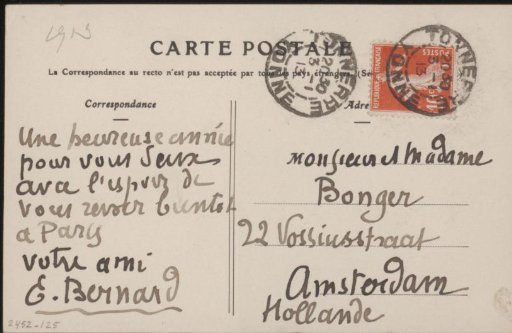 1913
CARTE POSTALE
La Correspondance au recto n'est pas acceptée par tous les pays étrangers (Se
Correspondance
Adre
TONNERRE
YONNE
20:30
3-1
13
TONNERRE
YONNE
20:30
13
POSTES
Une heureuse année
pour vous deux
avec l'espoir de
vous revoir bientot
a Paris
votre ami
E. Bernard
Monsieur et Madame
Bonger
22 Vossiusstraat
Amsterdam
Hollande
2452-125